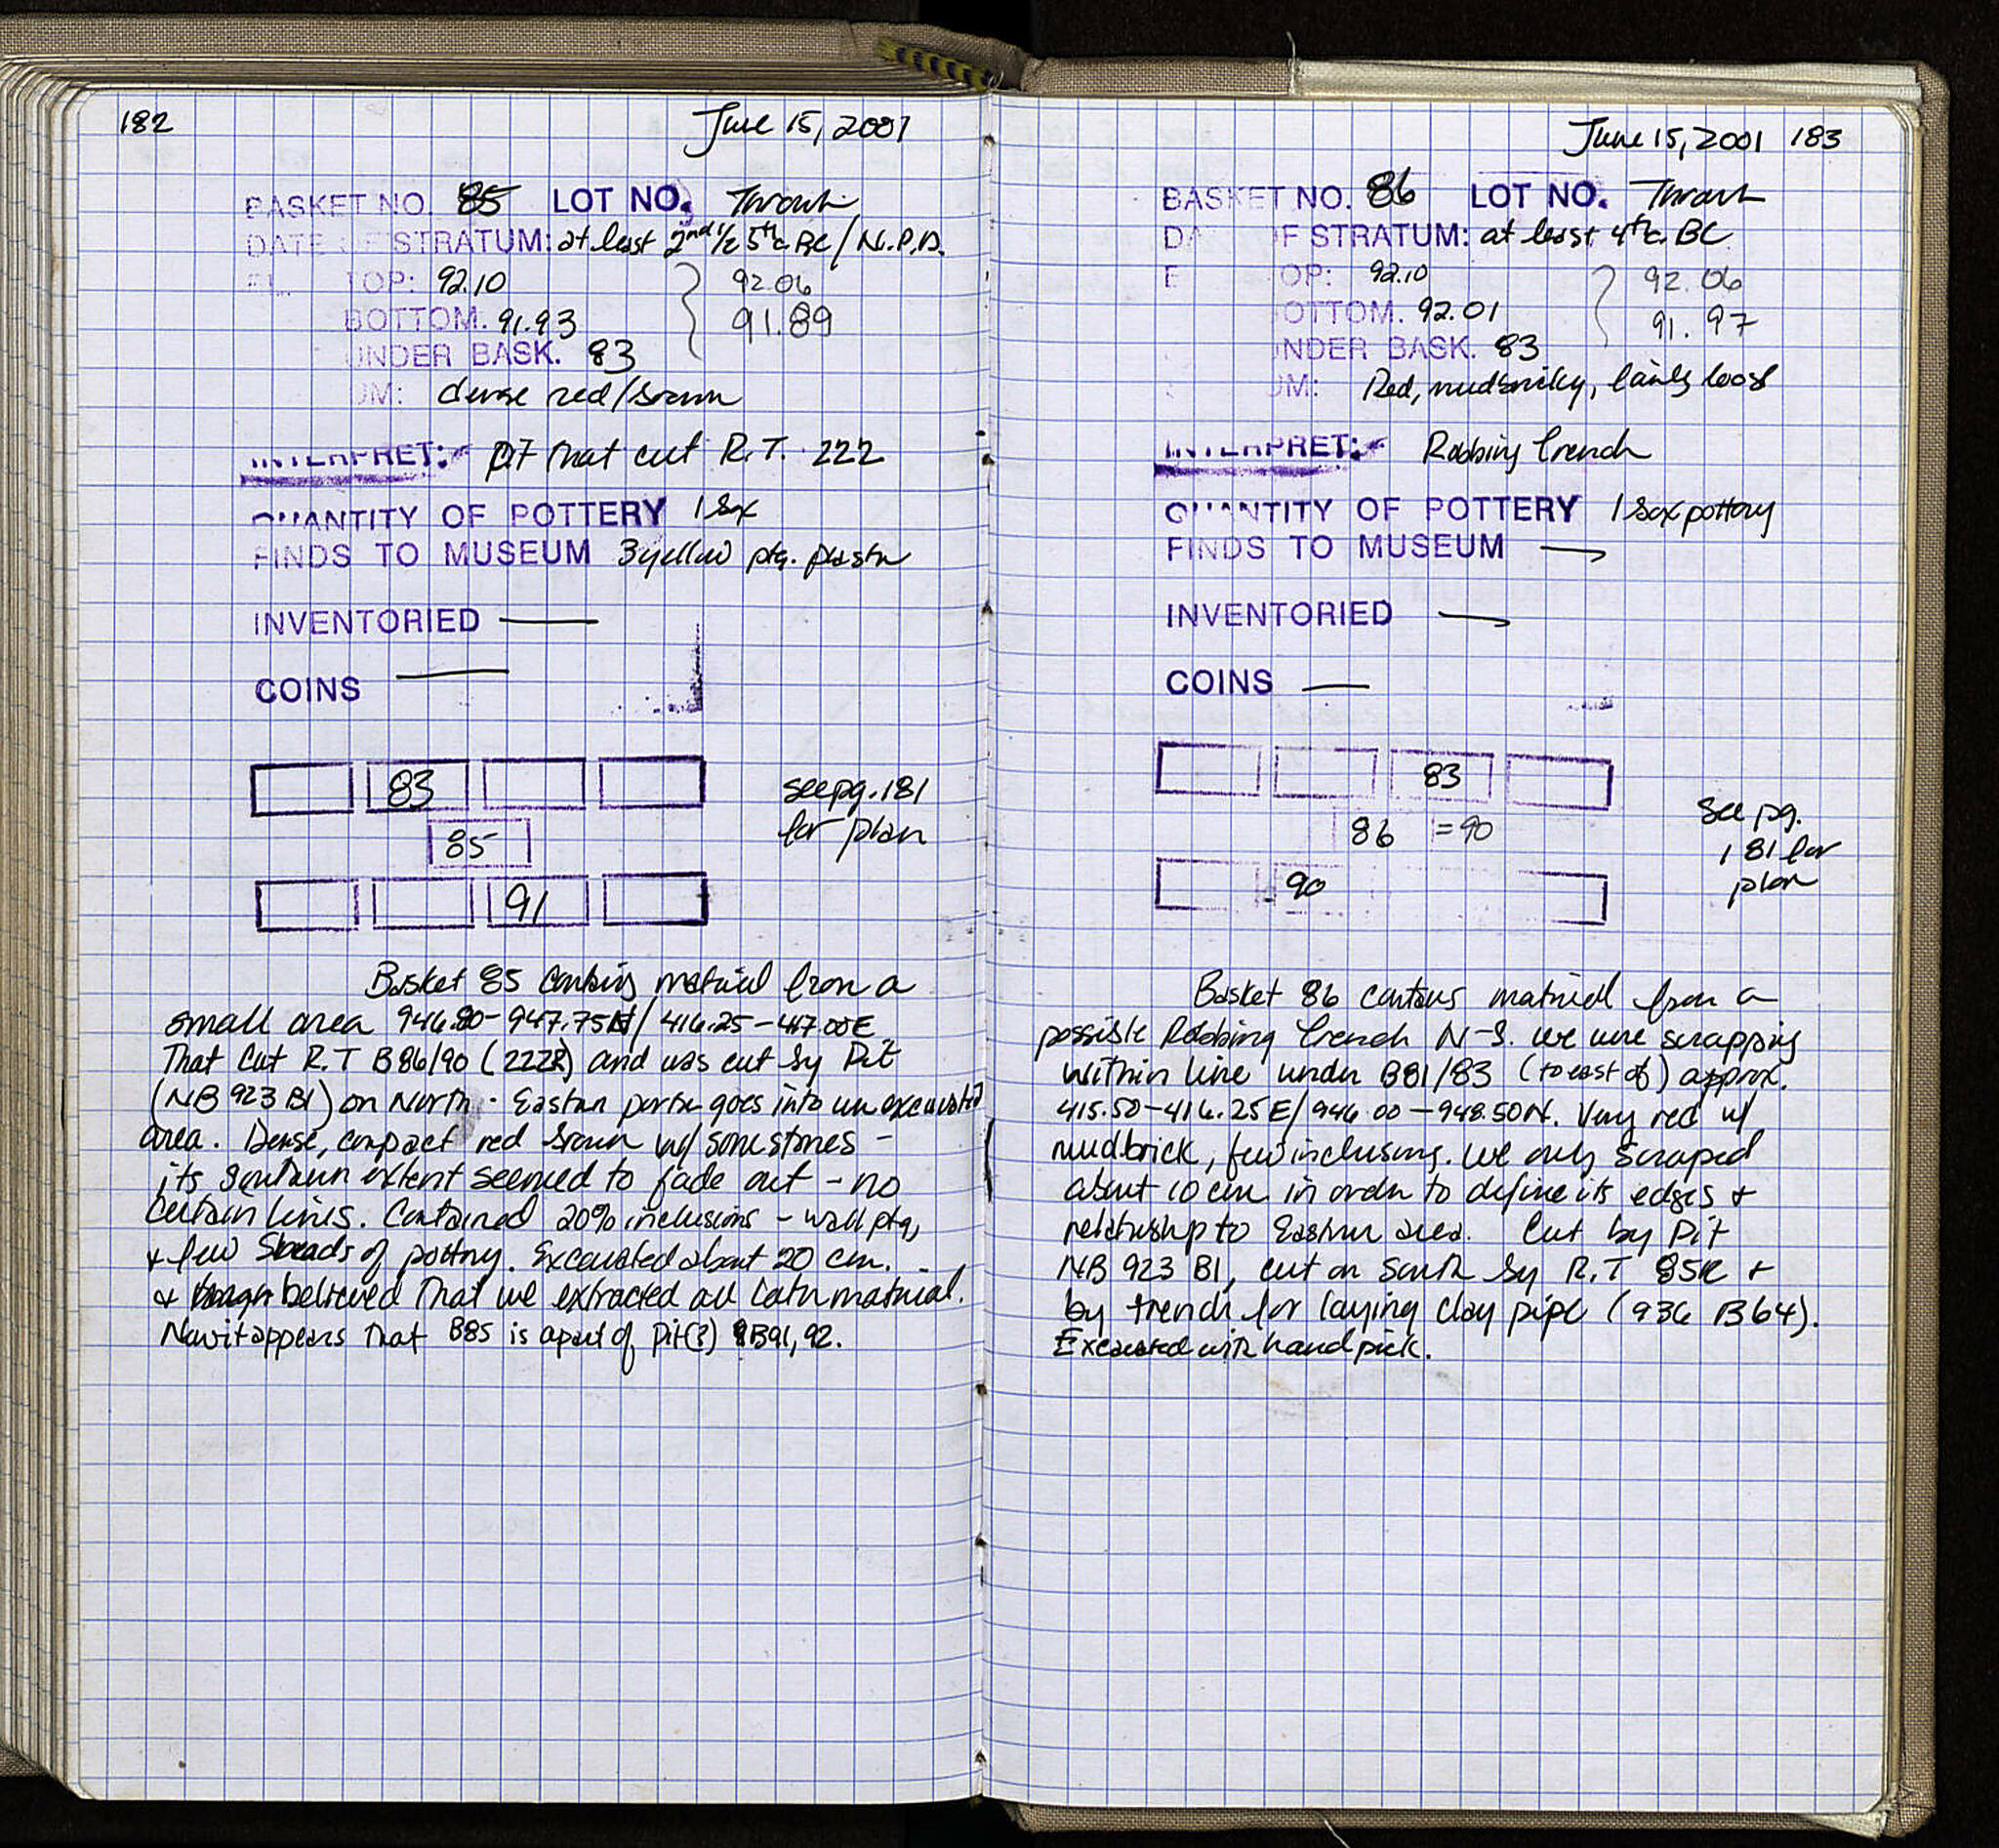 182
June 15, 2001
BASKET NO. 85 LOT NO. Thrown
DATE OF STRATUM: at least 2nd 1/2 5th c. BC / N.P.D.
TOP: 92.10 } 92.06
BOTTOM. 91.93 91.89
UNDER BASK. 83
UM: dense red/brown
INTERPRET: pit that cut R.T. 222
QUANTITY OF POTTERY 1 box
FINDS TO MUSEUM 3 yellow ptg. plaster
INVENTORIED —
COINS —
83
85
91
see pg. 181
for plan
Basket 85 contains material from a
small area 946.80-947.75N/416.25-417.00E
that cut R.T B86/90 (222) and was cut by Pit
(NB 923 B1) on North. Eastern portion goes into unexcavated
area. Dense, compact red brown w/ some stones -
its southern extent seemed to fade out - no
certain lines. Contained 20% inclusions - wall ptg,
+ few sherds of pottery. Excavated about 20 cm.
+ believed that we extracted all later material.
Now it appears that B85 is a part of pit(?) B91, 92.
June 15, 2001 183
BASKET NO. 86 LOT NO. Thrown
DATE OF STRATUM: at least 4th c. BC
TOP: 92.10 } 92.06
BOTTOM. 92.01 91.97
UNDER BASK. 83
UM: Red, mudbricky, fairly loose
INTERPRET: Robbing trench
QUANTITY OF POTTERY 1 box pottery
FINDS TO MUSEUM —
INVENTORIED —
COINS —
83
86 = 90
90
see pg.
181 for
plan
Basket 86 contains material from a
possible Robbing trench N-S. We were scrapping
within line under B81/83 (to east of) approx.
415.50-416.25E/946.00-948.50N. Very red w/
mudbrick, few inclusions. We only scraped
about 10 cm in order to define its edges +
relationship to Eastern area. Cut by Pit
NB 923 B1, cut on South by R.T 85 +
by trench for laying clay pipe (936 B64).
Excavated with hand pick.